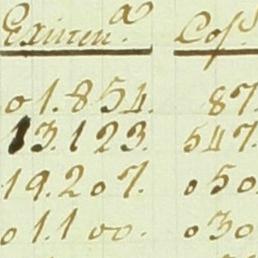 Existen.ª Cos.ᵗ
01.854. 87
13.123. 547.
19.207. 050
01.100. 030